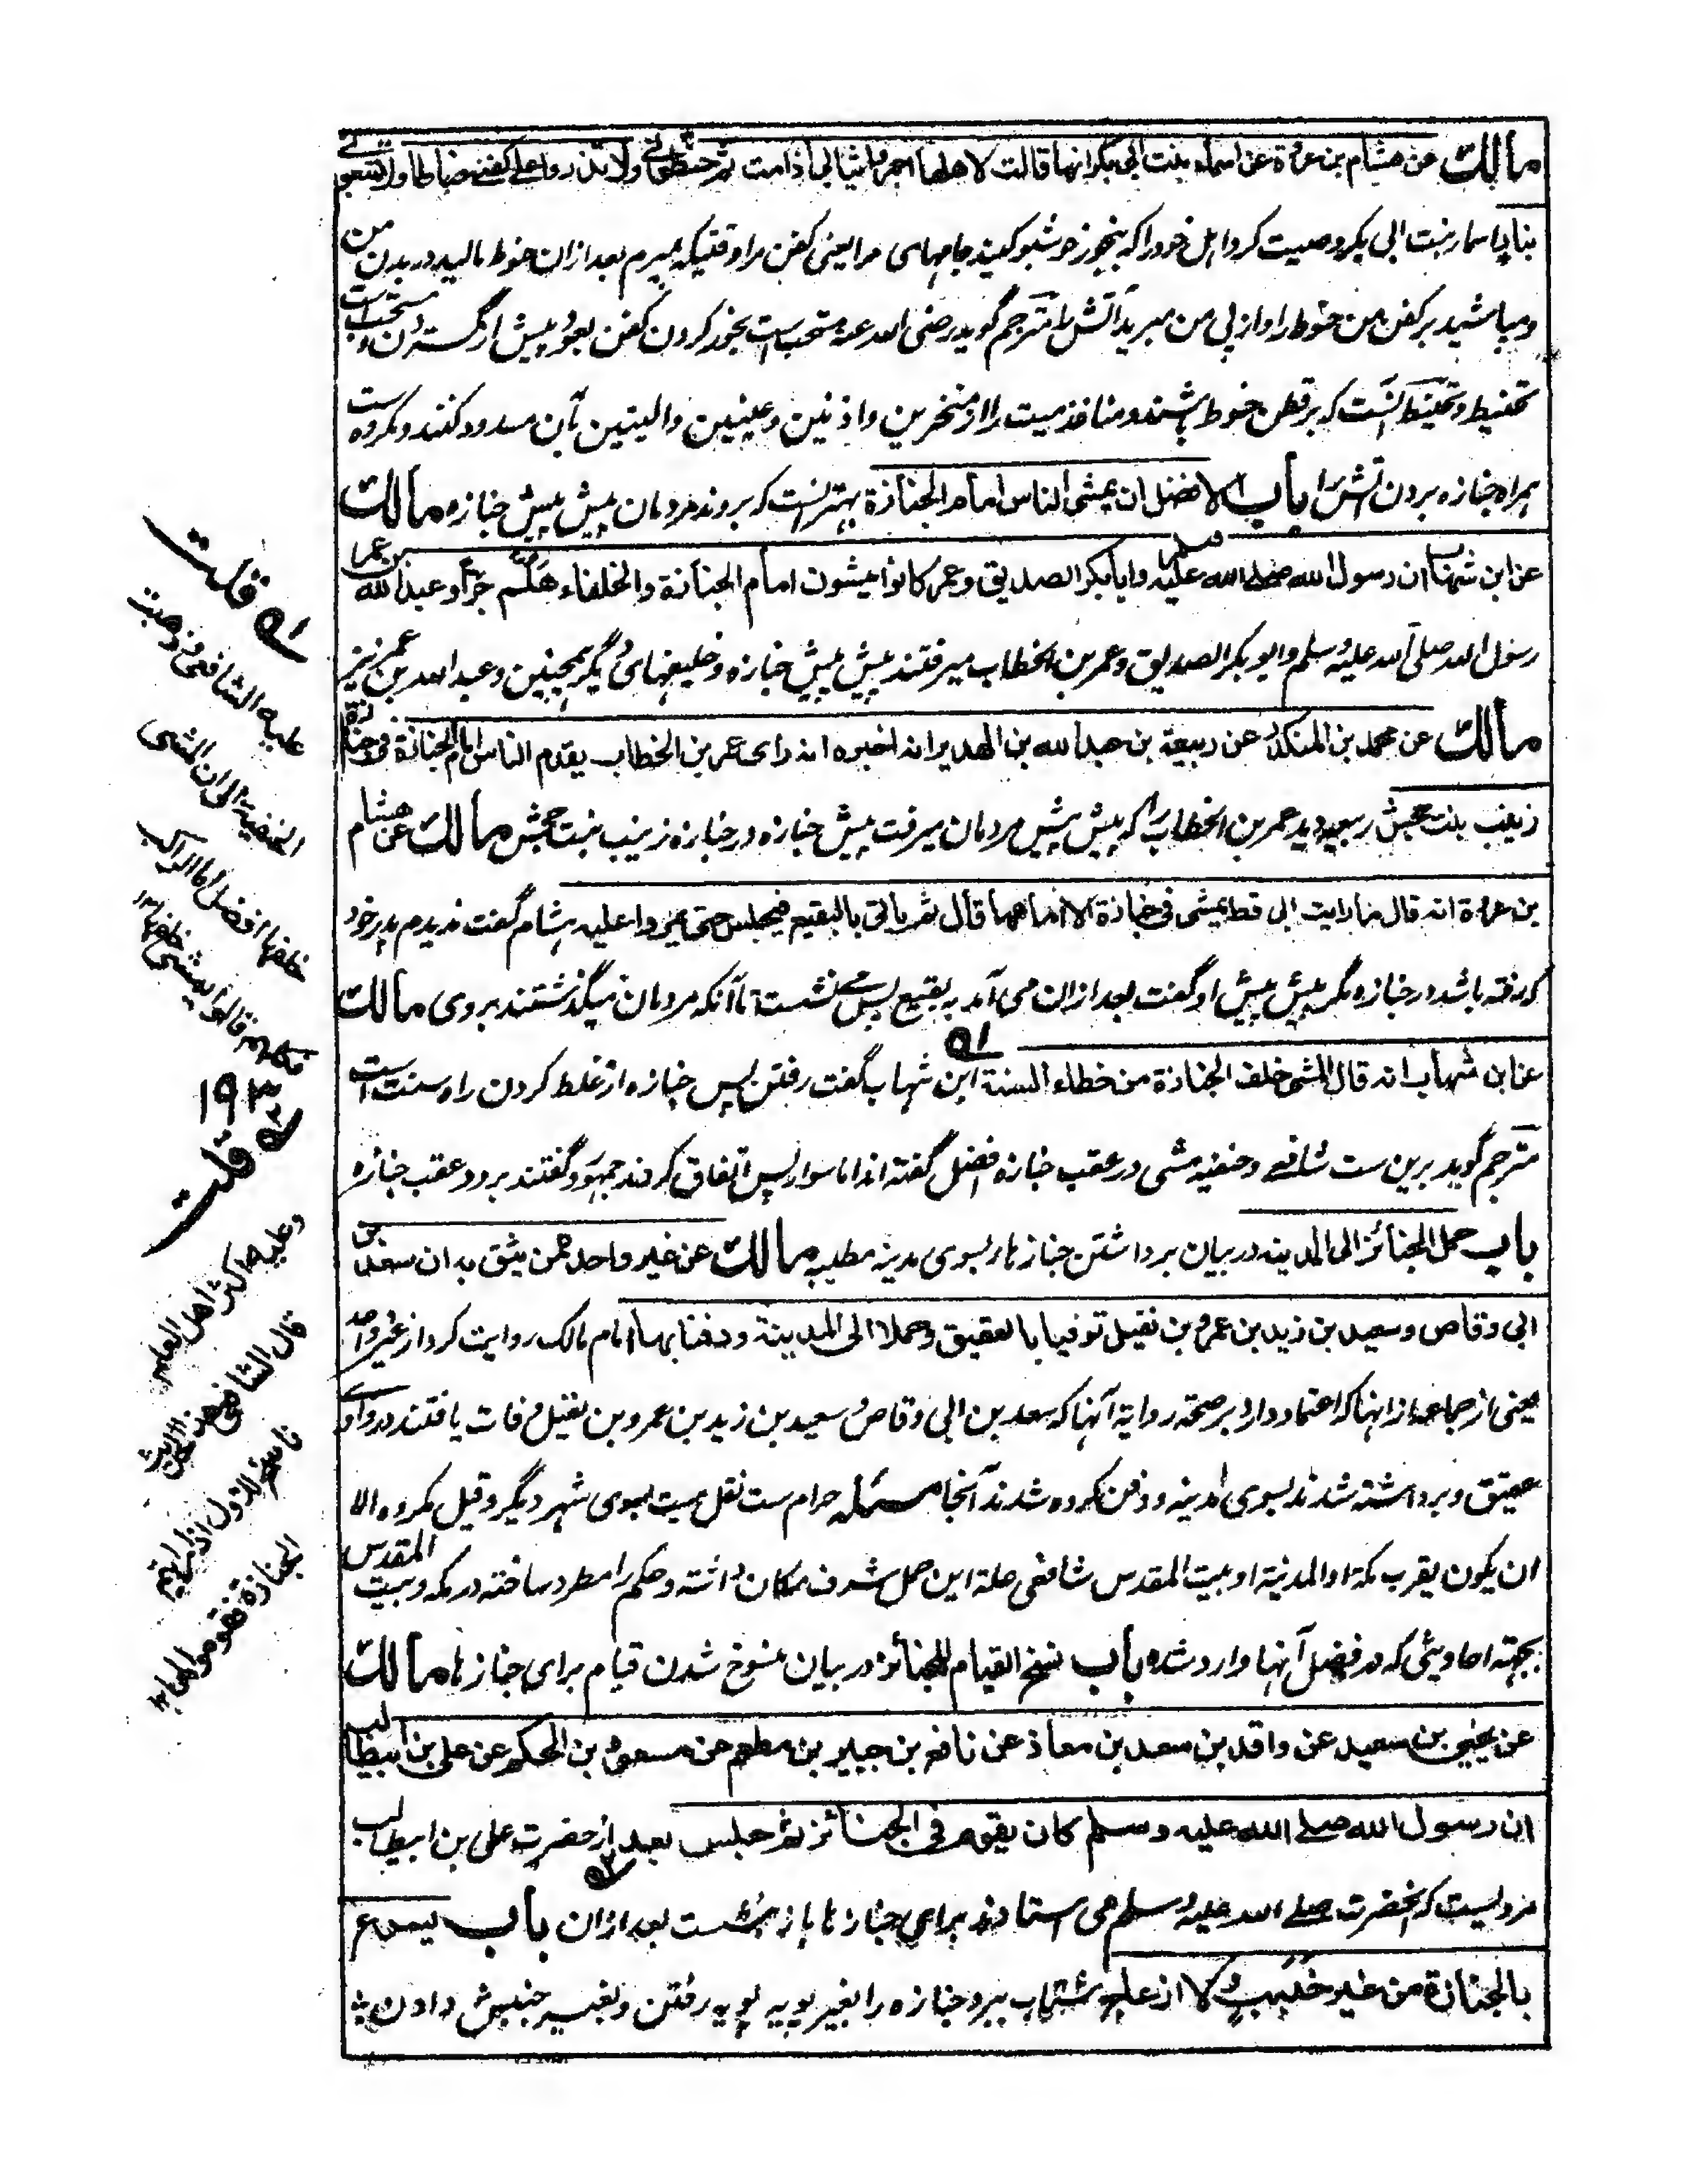 مالك عن هشام بن عروة عن اسماء بنت ابی بکر انها قالت لاهلها اجمروا ثیابی اذا مت ثم حنطونی ولا تذروا علی کفنی حناطا ولا تتبعونی
بنار اسماء بنت ابی بکر وصیت کرد اہل خود را کہ بنجور خوشبو کنید جامہای مرا یعنی کفن مرا وقتیکہ بمیرم بعد ازان حنوط بالید در بدن من
ومپاشید بر کفن من حنوط را واز پی من مبرید آتش را مترجم گوید رضی اللہ عنہ مستحب ست بخور کردن کفن بعود پیش از گستردن و مستحب است
تحنیط و تحنیط آنست کہ بر قطن حنوط پاشند و منافذ میت را از منخرین واذنین وعینین والیتین بآن مسدود کنند ومکروہ ست
ہمراہ جنازہ بردن آتش را باب الافضل ان یمشی الناس امام الجنازة بہتر آنست کہ بروند مردمان پیش پیش جنازہ مالك
عن ابن شہاب ان رسول الله صلے الله علیه وسلم وابا بکر الصدیق وعمر کانوا یمشون امام الجنازة والخلفاء هلم جرّا وعبد الله بن عمر
رسول اللہ صلی اللہ علیہ وسلم وابو بکر الصدیق وعمر بن الخطاب میرفتند پیش پیش جنازہ وخلیفہای دیگر ہمچنین وعبد اللہ بن عمر نیز
مالك عن محمد بن المنکدر عن ربیعة بن عبد الله بن الهدیر انه اخبره انه رای عمر بن الخطاب یقدم الناس امام الجنازة فی جنازة
زینب بنت جحش ربیعہ دید عمر بن الخطاب را کہ پیش پیش مردمان میرفت پیش جنازہ در جنازہ زینب بنت جحش مالك عن هشام
بن عروة انه قال ما رایت ابی قط یمشی فی جنازة الا امامها قال ثم یاتی بالبقیع فیجلس حتی یمروا علیه ہشام گفت ندیدم پدر خود
کہ رفتہ باشد در جنازہ مگر پیش پیش او گفت بعد ازان می آمد بہ بقیع پس می نشست تا آنکہ مردمان میگذشتند بروی مالك
عن ابن شہاب انه قال المشی خلف الجنازة من خطاء السنة ابن شہاب گفت رفتن پس جنازہ از غلط کردن راہ سنت است
مترجم گوید برین ست شافعی وحنفیہ مشی در عقب جنازہ افضل گفتہ اند اما سوار پس اتفاق کردند جمہور وگفتند برود عقب جنازہ
باب حمل الجنائز الی المدینه در بیان برداشتن جنازہا بسوی مدینہ مطیبہ مالك عن غیر واحد ممن یثق به ان سعد بن
ابی وقاص وسعید بن زید بن عمرو بن نفیل توفیا بالعقیق وحملا الی المدینة ودفنا بها امام مالک روایت کرد از غیر واحد
یعنی از جماعہ از انہا کہ اعتماد دارد بر صحتہ روایة آنہا کہ سعد بن ابی وقاص وسعید بن زید بن عمرو بن نفیل وفات یافتند در وادی
عقیق وبرداشتہ شدند بسوی مدینہ ودفن کردہ شدند آنجا مسئلہ حرام ست نقل میت بسوی شہر دیگر وقیل مکروہ الا
ان یکون بقرب مکة او المدینة او بیت المقدس شافعی علة این حمل شرف مکان داشتہ وحکم را مطرد ساختہ در مکہ وبیت المقدس
بجہتہ احادیثی کہ در فضل آنہا وارد شدہ باب نسخ القیام للجنائز در بیان منسوخ شدن قیام برای جنازہا مالك
عن یحیی بن سعید عن واقد بن سعد بن معاذ عن نافع بن جبیر بن مطعم عن مسعود بن الحکم عن علی بن ابیطالب
ان رسول الله صلے الله علیه وسلم کان یقوم فی الجنائز ثم جلس بعد از حضرت علی بن ابیطالب
مرویست کہ آنحضرت صلے اللہ علیہ وسلم می استادند برای جنازہا باز نشست بعد ازان باب یسرع
بالجنازة من غیر خبب کلا از علی شتاب ببرد جنازہ را بغیر پویہ پویہ رفتن وبغیر جنبش دادن
۵۱ قلت
علیه الشافعی وذهبت
الحنفیة الی ان المشی
خلفها افضل اما الراکب
فکلهم قالوا یمشی خلفها ۱۲
۱۹۳
۵۲ قلت
وعلیه اکثر اهل العلم
قال الشافعی هذا الحدیث
ناسخ للاول اذا رایتم
الجنازة فقوموا لها ۱۲